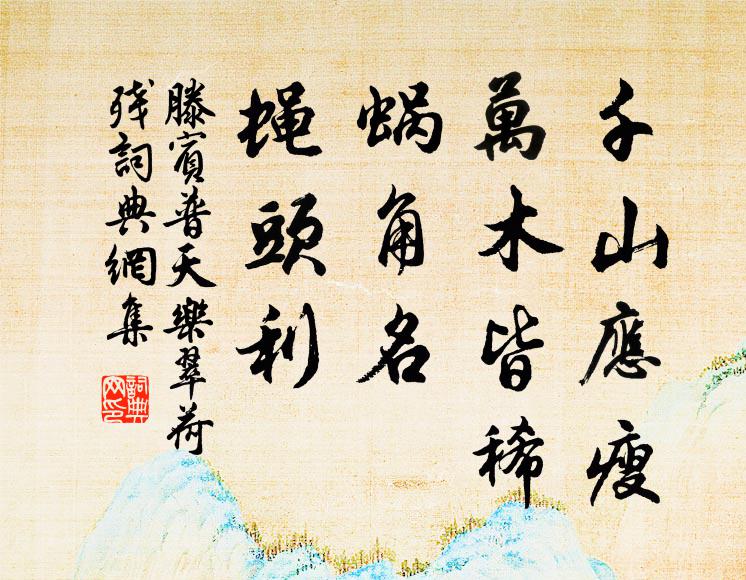 千山應瘦
萬木皆稀
蝸角名
蝇頭利
滕賓普天樂翠荷
残詞典網集
詞典網印